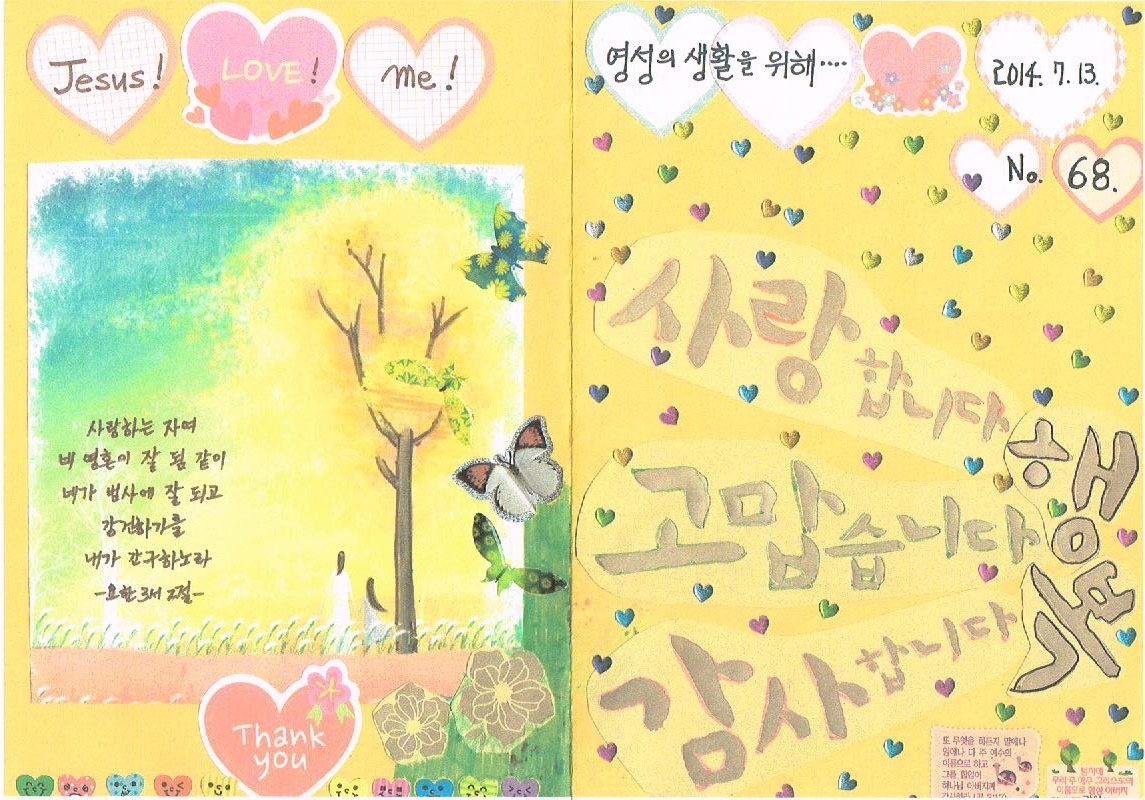 Jesus! LOVE! me!
사랑하는 자여
네 영혼이 잘 됨 같이
네가 범사에 잘 되고
강건하기를
내가 간구하노라
-요한3서 2절-
Thank
you
영성의 생활을 위해....
2014. 7. 13.
No. 68.
사랑합니다
고맙습니다
감사합니다
행복
또 무엇을 하든지 말에나
일에나 다 주 예수의
이름으로 하고
그를 힘입어
하나님 아버지께
우리 주 예수 그리스도의
이름으로 항상 아버지